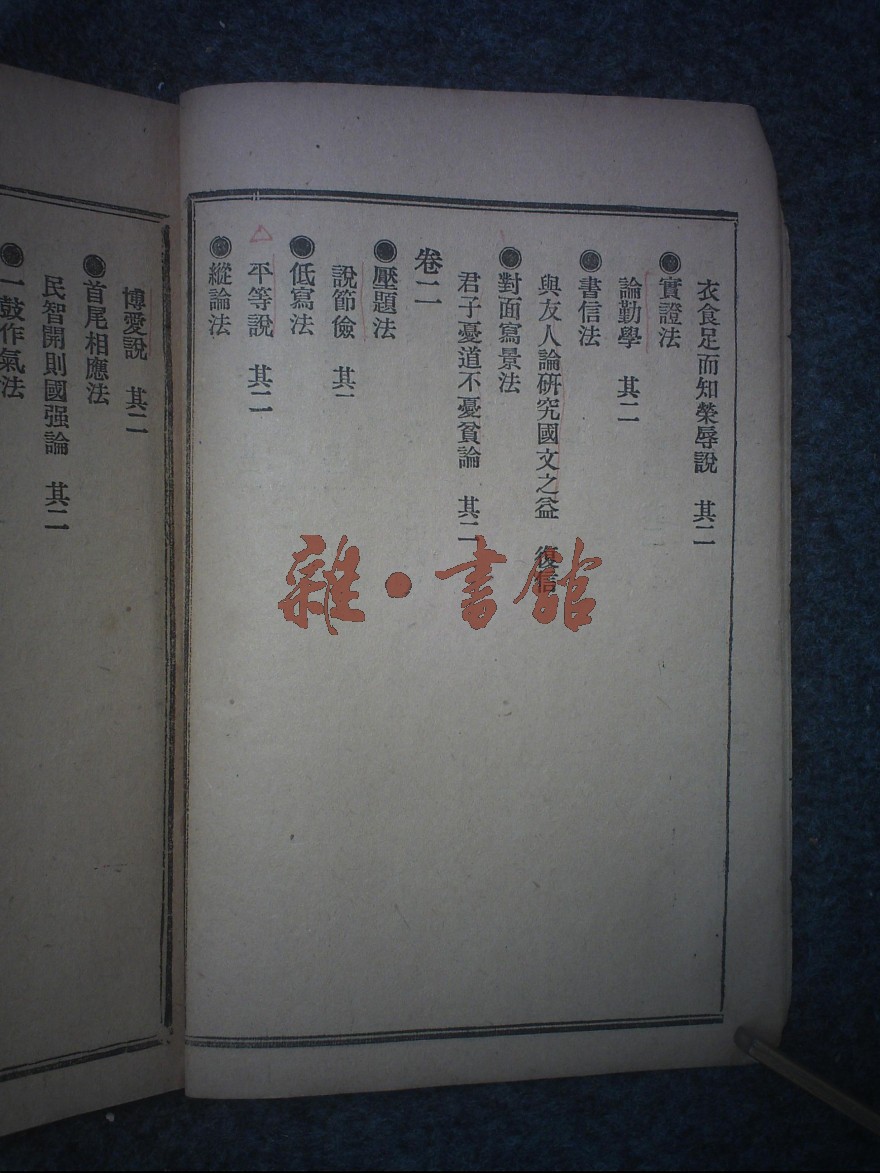 衣食足而知榮辱說　其二
◉實證法
論勤學　其二
◉書信法
與友人論硏究國文之益　復信
◉對面寫景法
君子憂道不憂貧論　其二
卷二
◉壓題法
說節儉　其二
◉低寫法
△平等說　其二
◉縱論法
博愛說　其二
◉首尾相應法
民智開則國强論　其二
◉一鼓作氣法
雜·書館